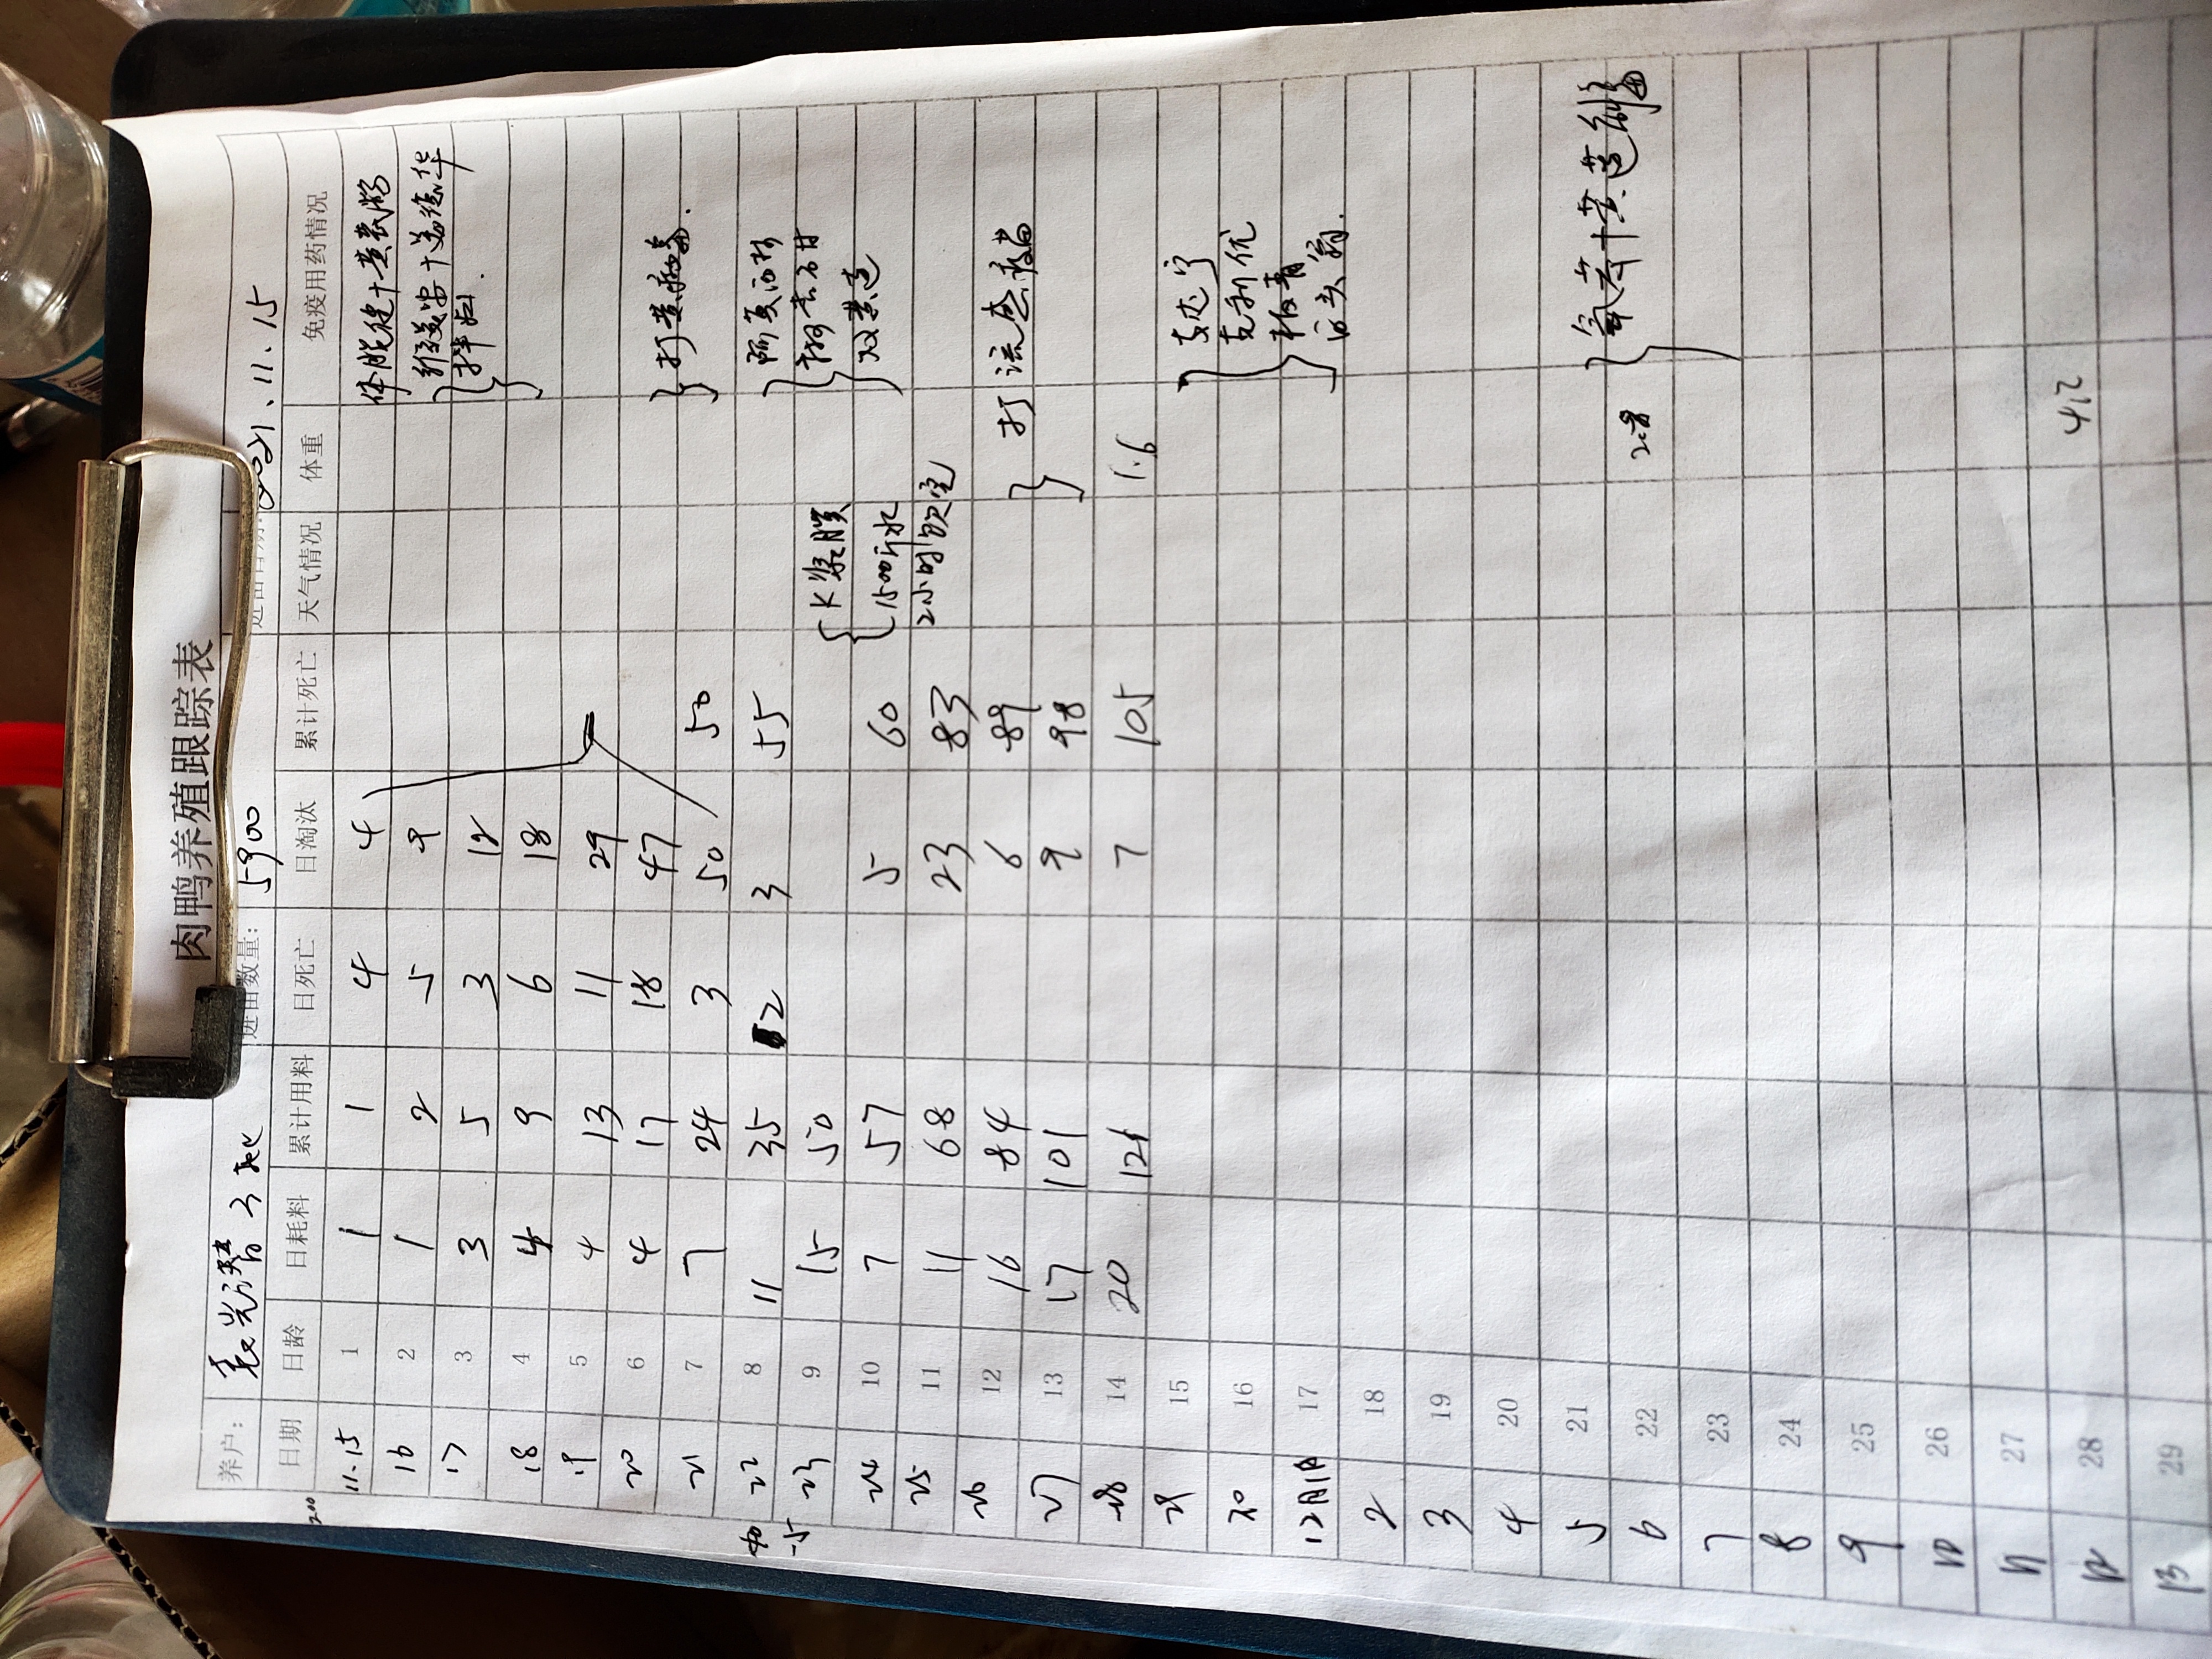 肉鸭养殖跟踪表
养户: 3北 进苗数量: 5900 进苗日期: 2021、11.15
日期 日龄 日耗料 累计用料 日死亡 日淘汰 累计死亡 天气情况 体重 免疫用药情况
200
11.15 1 1 1 4 4 体肥健十黄芪多
16 2 1 2 5 9
17 3 3 5 3 12 拌料.
18 4 4 9 6 18
19 5 4 13 11 29
20 6 4 17 18 47 打黄病毒.
21 7 7 24 3 50 50
22 8 11 35 2 3 55 阿莫西林
-15 23 9 15 50 K浆胶
24 10 7 57 5 60 1500斤水 双黄连
25 11 11 68 23 83 2小时饮完
26 12 16 84 6 89 打流感疫苗
27 13 17 101 9 98
28 14 20 121 7 105 1.6
29 15
30 16
12月1日 17 板青
2 18 白头翁.
3 19
4 20
5 21
6 22 2.8
7 23
8 24
9 25
10 26
11 27
12 28 4.2
13 29